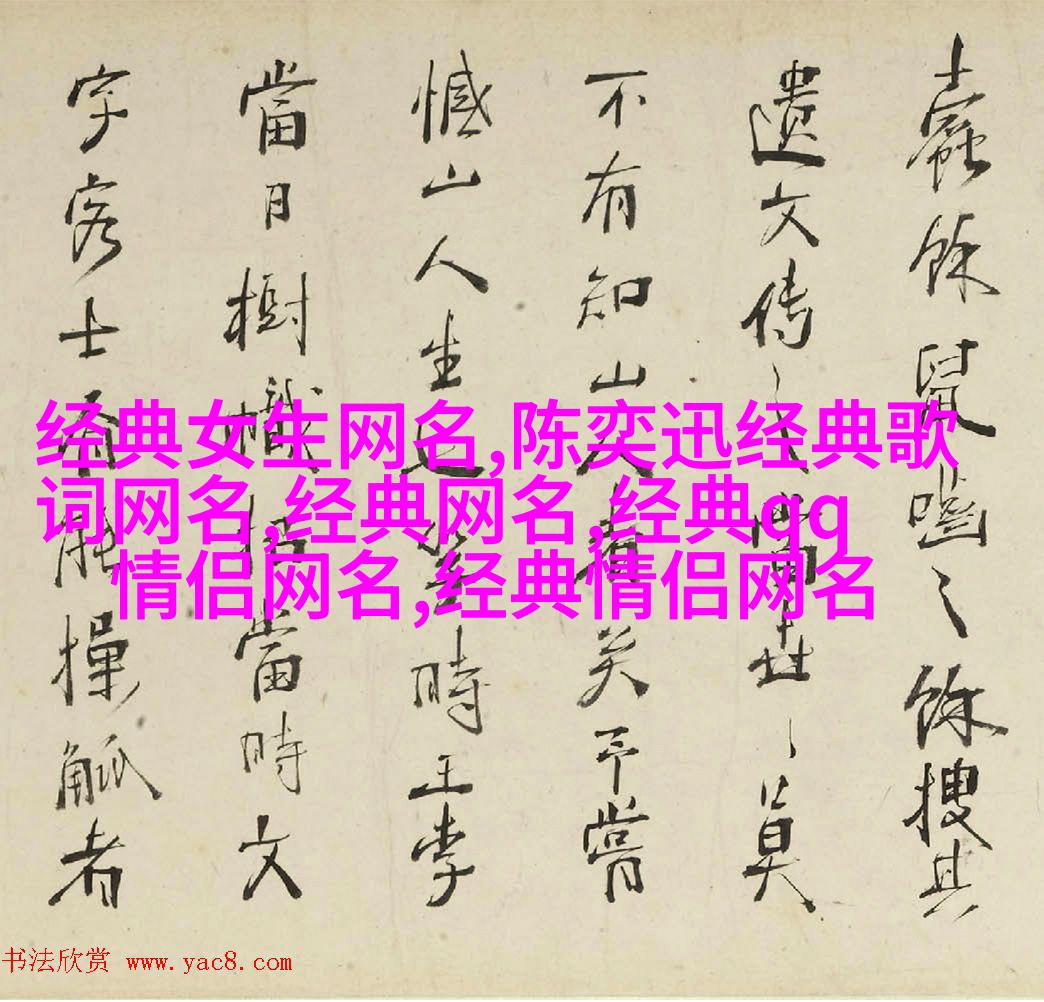 蠹餘鼠嚙之餘搜其
遺文传之當世之莫
不有知山人者矣予嘗
憾山人生時王李
當日樹幟招當時文
字客士能操觚者
经典女生网名,陈奕迅经典歌
词网名,经典网名,经典qq
情侣网名,经典情侣网名
书法欣赏 www.yac8.com